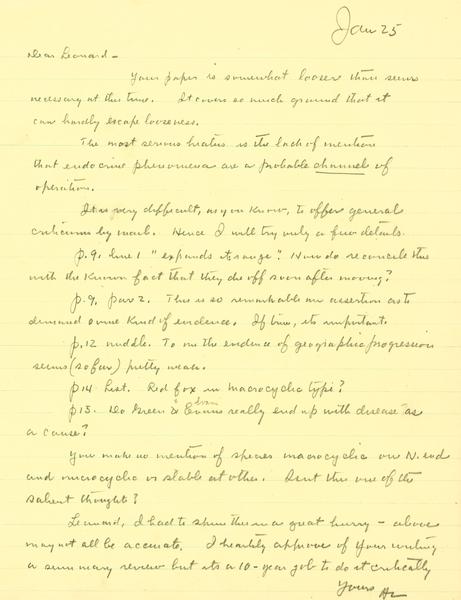 Jan 25
Dear Leonard -
Your paper is somewhat looser than seems
necessary at this time. It covers so much ground that it
can hardly escape looseness.
The most serious hiatus is the lack of mention
that endocrine phenomena are a probable channel of
operation.
It is very difficult, as you know, to offer general
criticisms by mail. Hence I will try only a few details.
p. 9, line 1 "expands its range". How do reconcile this
with the known fact that they die off soon after moving?
p. 9, par 2. This is so remarkable an assertion as to
demand some kind of evidence. If true, its important.
p. 12 middle. To me the evidence of geographic progression
seems (so far) pretty weak.
p 14 List. Red fox in macrocyclic type?
p 15. Do Green & Evans really end up with disease as
a cause?
You make no mention of species macrocyclic one N. end
and microcyclic or stable at other. Isnt this one of the
salient thought?
Leonard, I had to skim this in a great hurry - above
may not all be accurate. I heartily approve of your writing
a summary review but its a 10-year job to do it critically
Yours